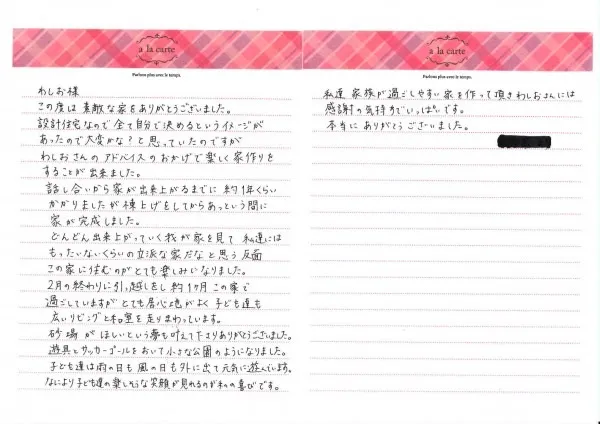 a la carte
Parlons plus avec le temps.
わしお様
この度は 素敵な家をありがとうございました。
設計住宅なので全て自分で決めるというイメージが
あったので大変かな？と思っていたのですが
わしおさんのアドバイスのおかげで楽しく家作りを
することが出来ました。
話し合いから家が出来上がるまでに 約1年くらい
かかりましたが棟上げをしてからあっという間に
家が完成しました。
どんどん出来上がっていく我が家を見て 私達には
もったいないくらいの立派な家だなと思う反面
この家に住むのがとても楽しみになりました。
2月の終わりに引っ越しをし 約1ヶ月この家で
過ごしていますがとても居心地がよく 子ども達も
広いリビングと和室を走りまわっています。
砂場がほしいという夢も叶えて下さりありがとうございました。
遊具とサッカーゴールをおいて小さな公園のようになりました。
子ども達は雨の日も風の日も外に出て元気に遊んでいます。
なにより子ども達の楽しそうな笑顔が見れるのが私の喜びです。
a la carte
Parlons plus avec le temps.
私達 家族が過ごしやすい家を作って頂きわしおさんには
感謝の気持ちでいっぱいです。
本当に ありがとうございました。